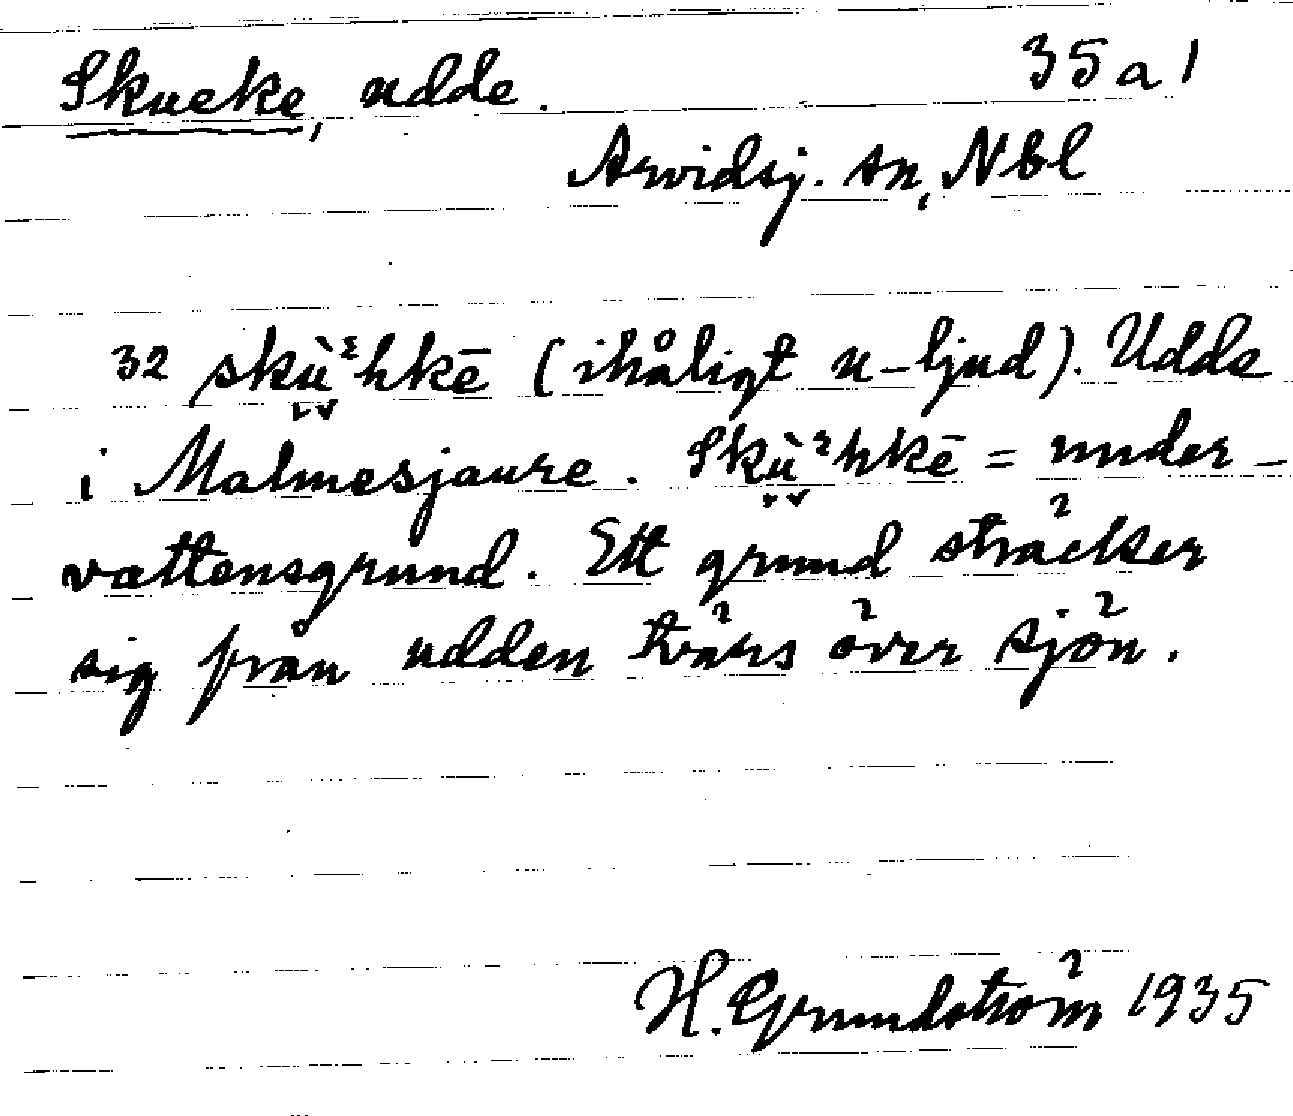 Skueke, udde. 35 a 1
Arvidsj. sn, Nbl
32 skù̯ᵌhkē (ihåligt u-ljud). Udde
i Malmesjaure. Skù̯ᵌhkē = under-
vattensgrund. Ett grund sträcker
sig från udden tvärs över sjön.
H. Grundström 1935